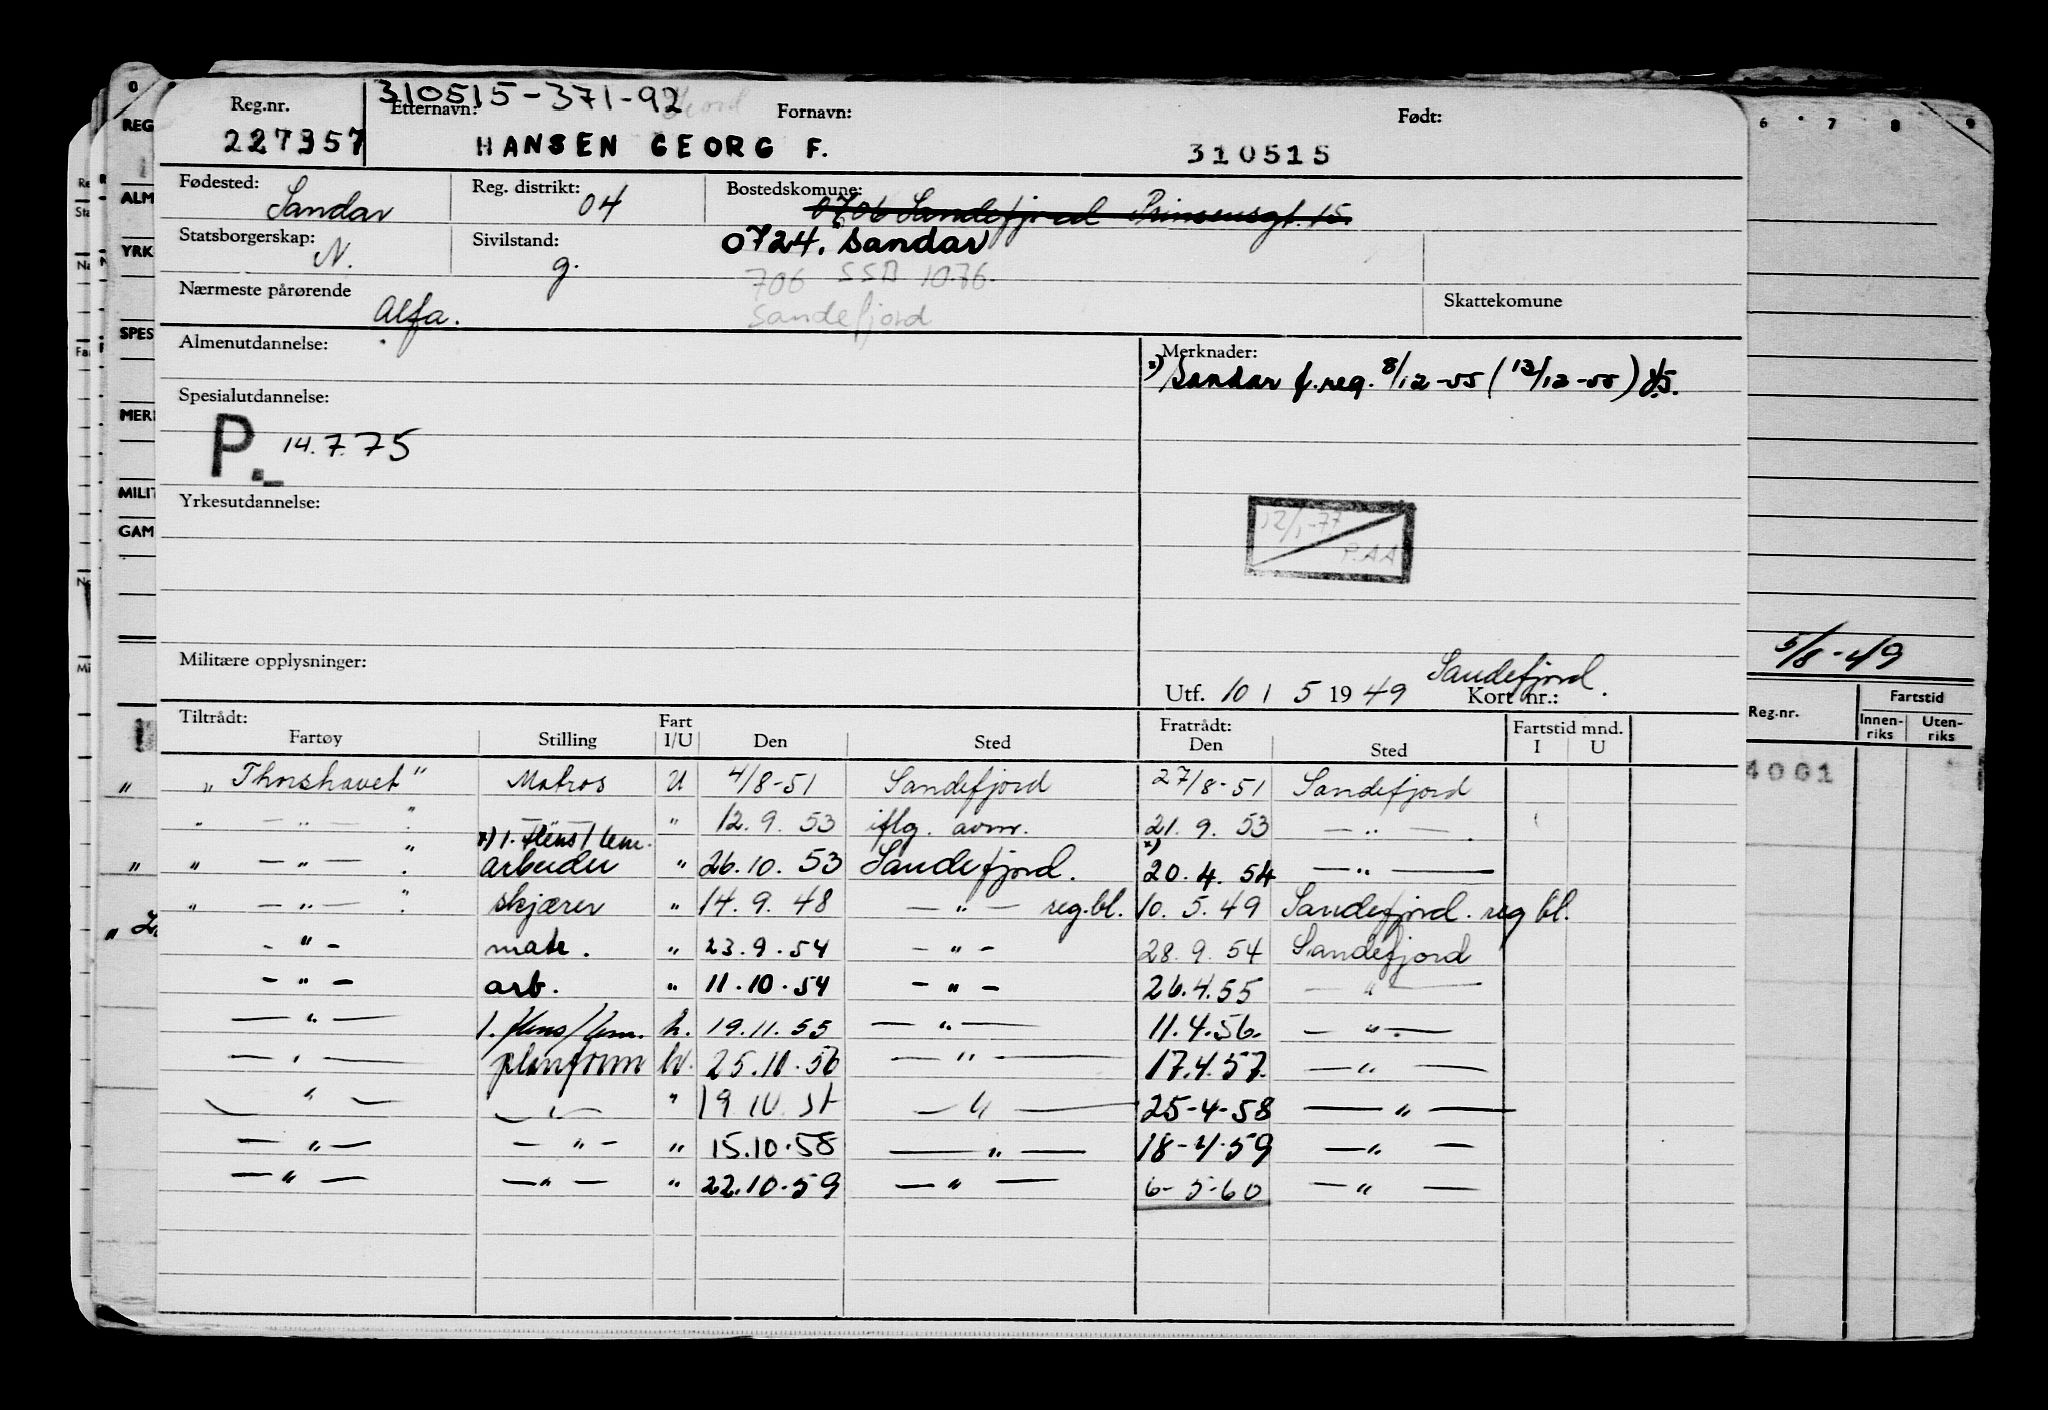 310515-371-92
Reg.nr. Etternavn: Fornavn: Født:
227357 HANSEN GEORG F. 310515
Fødested: Sandar Reg. distrikt: 04 Bostedskomune: 0706 Sandefjord Prinsensgt. 15.
Statsborgerskap: N. Sivilstand: g. 0724. Sandar
706 SSB 10.76.
Nærmeste pårørende Alfa. Sandefjord Skattekomune
Almenutdannelse: Merknader:
x) Sandar f.reg. 8/12-55 (12/12-55)
Spesialutdannelse:
P. 14.7.75
Yrkesutdannelse:
12/1-77
P.AA
Militære opplysninger:
Sandefjord.
Utf. 10 / 5 1949 Kort nr.:
Tiltrådt: Fart Fratrådt: Fartstid mnd.
Fartøy Stilling I/U Den Sted Den Sted I U
" Thorshavet " Matros U 4/8-51 Sandefjord 27/8-51 Sandefjord
" — " — " — " — " 12.9.53 iflg. avm. 21.9.53 — " — .
x) 1. flens/lem.
" — " — " arbeider " 26.10.53 Sandefjord. x) 20.4.54 — " —
" — " — " skjærer " 14.9.48 — " — reg.bl. 10.5.49 Sandefjord. reg bl.
- " - matr. " 23.9.54 - " - 28.9.54 Sandefjord
- " - arb. " 11.10.54 - " - 26.4.55 — " —
— " — 1. flens/lem. h. 19.11.55 — " — 11.4.56. — " —
— " — planform hv. 25.10.56 — " — 17.4.57. — " —
— " — — " — " 19 10 57 — " — 25-4-58 — " —
— " — — " — " 15.10.58 — " — 18-4-59 — " —
— " — — " — " 22.10.59 — " — 6-5-60 — " —
REG
ALM
YRK
SPES
MERK
MILIT
GAM
6 7 8 9
5/8-49
Reg.nr. Fartstid
Innen-riks Uten-riks
4001